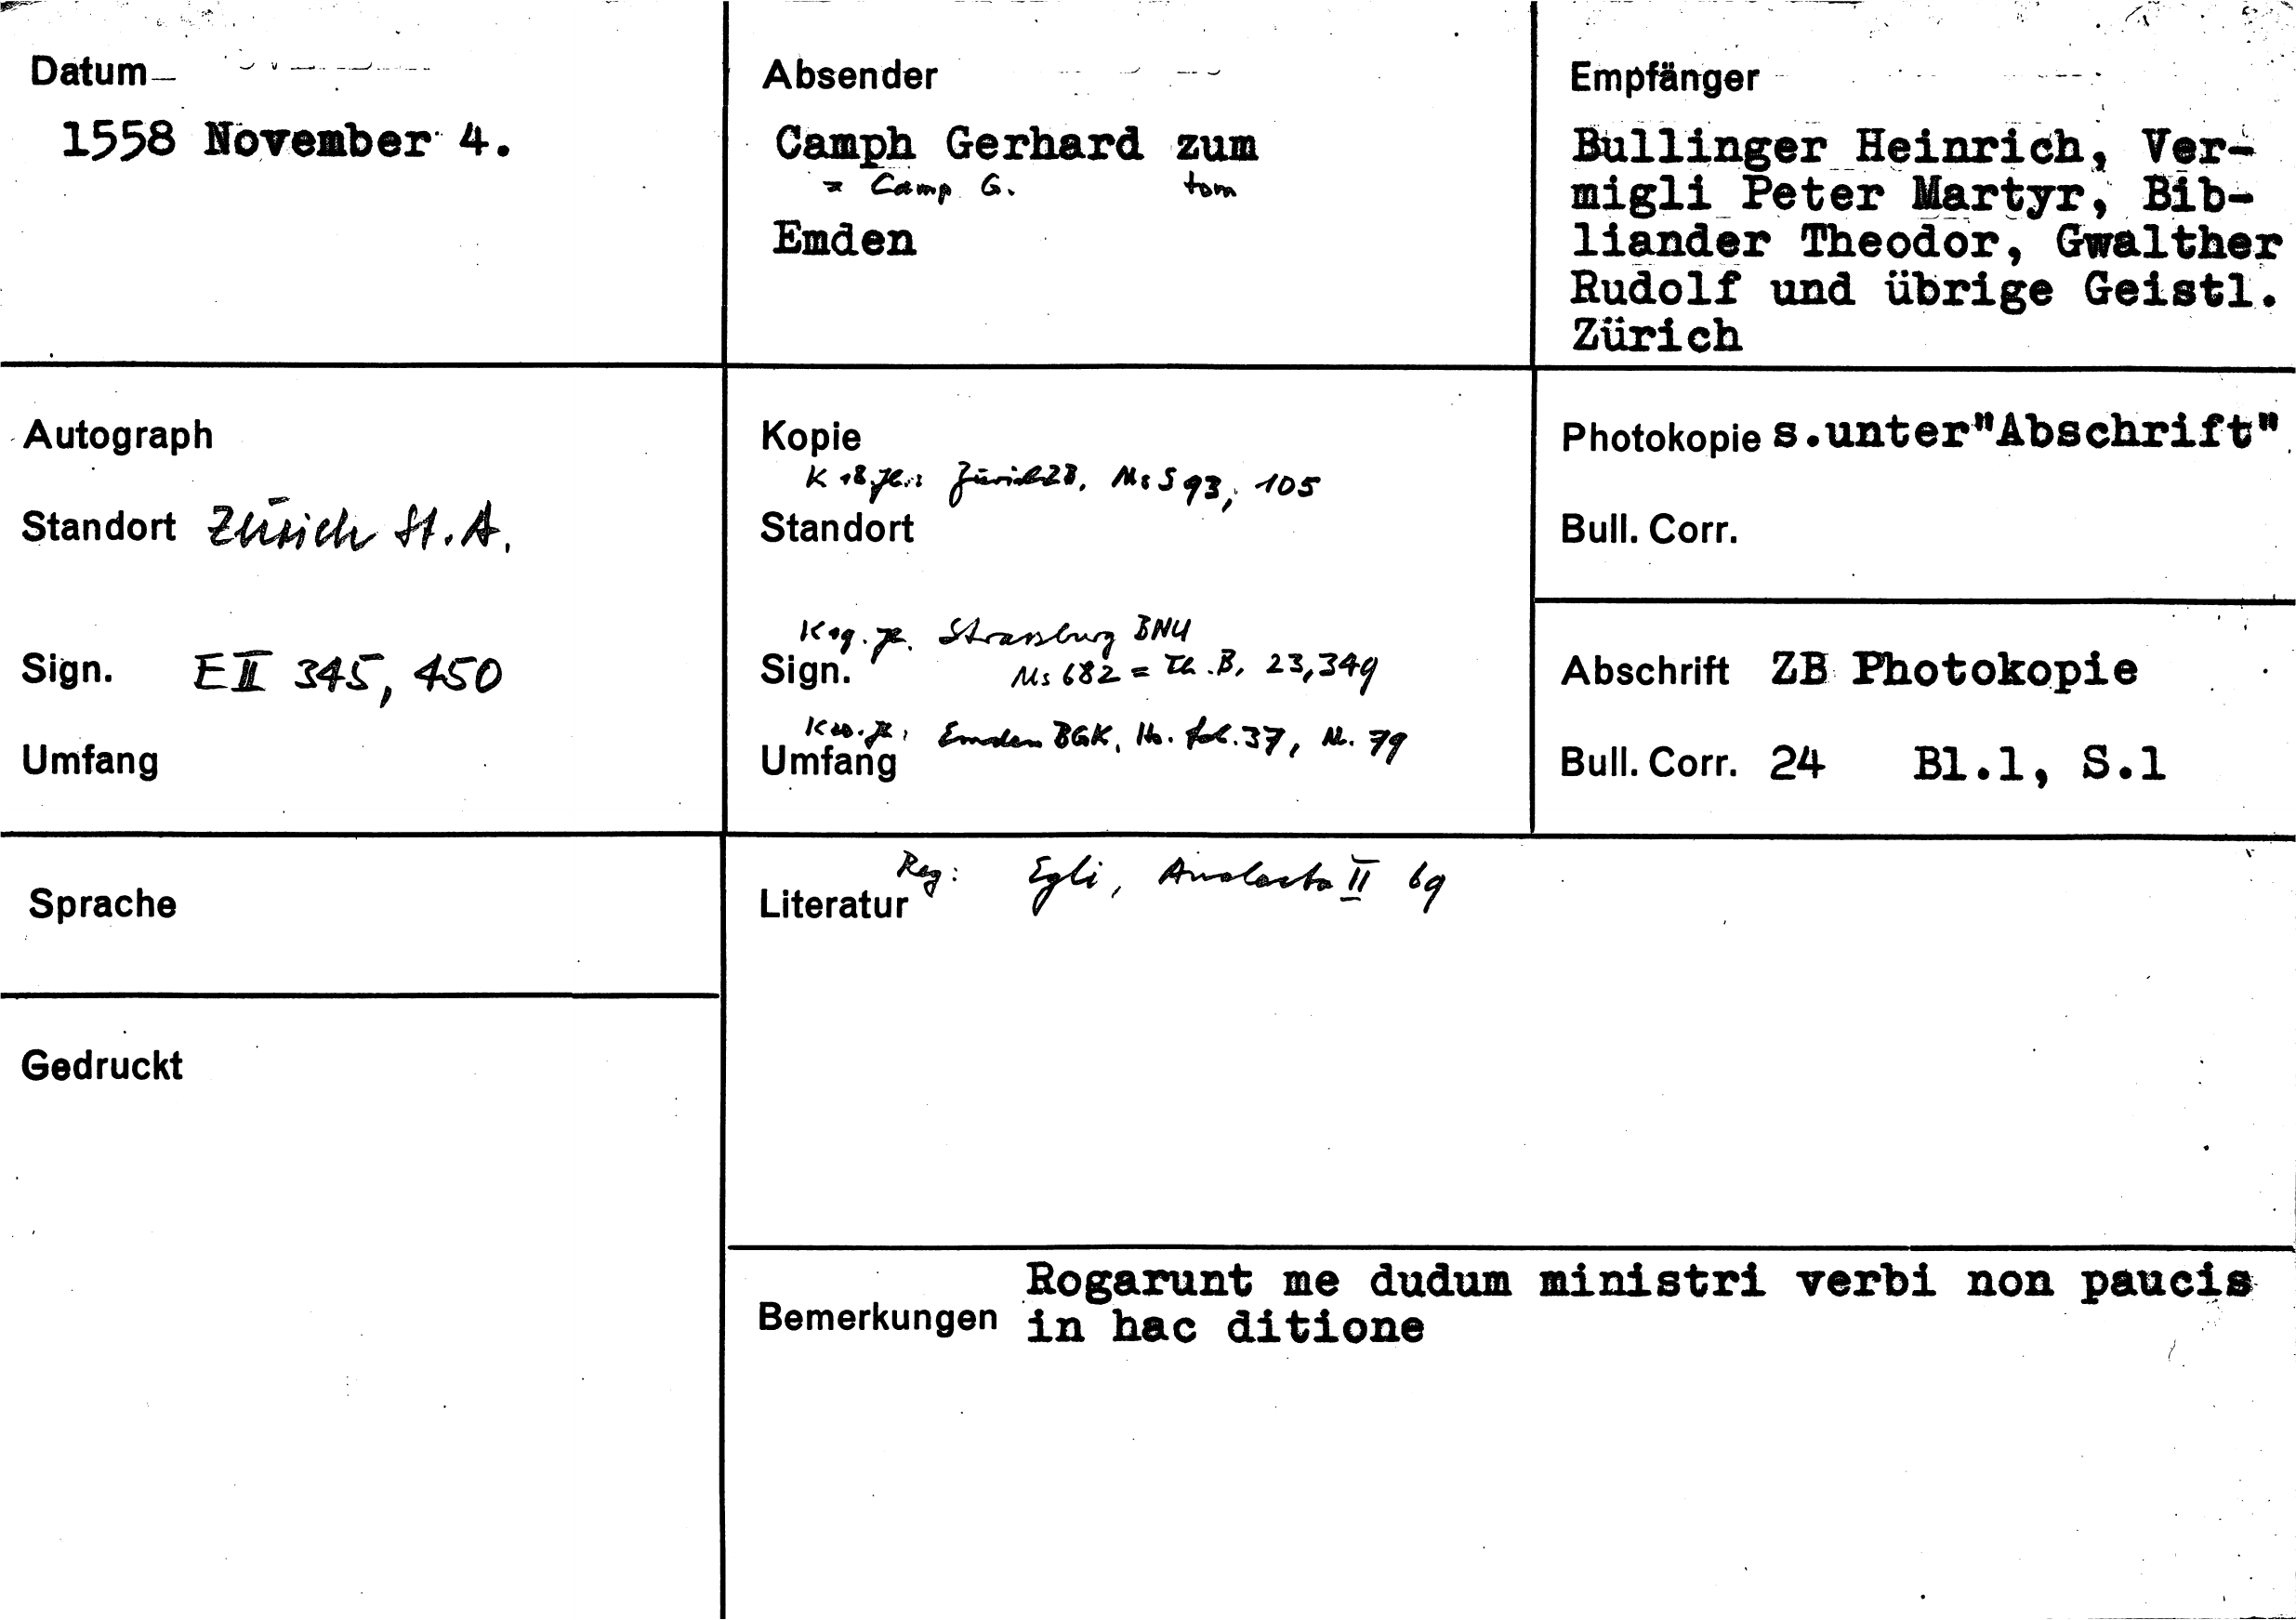 Datum
1558 November 4.
Absender
Camph Gerhard zum
= Camp G. tom
Emden
Empfänger
Bullinger Heinrich, Ver-
migli Peter Martyr, Bib-
liander Theodor, Gwalther
Rudolf und übrige Geistl.
Zürich
Autograph
Standort Zürich St.A.
Sign. E II 345, 450
Umfang
Kopie
K 18. Jh.: Zürich ZB, Ms S 93, 105
Standort
K 19. Jh. Strassburg BNU
Sign. Ms 682 = Th. B, 23, 349
Emden BGK, Hs. fol. 37, N. 79
Umfang
Photokopie s.unter"Abschrift"
Bull. Corr.
Abschrift ZB Photokopie
Bull. Corr. 24 Bl.1, S.1
Sprache
Gedruckt
Reg: Egli, Analecta II 69
Literatur
Rogarunt me dudum ministri verbi non paucis
Bemerkungen in hac ditione